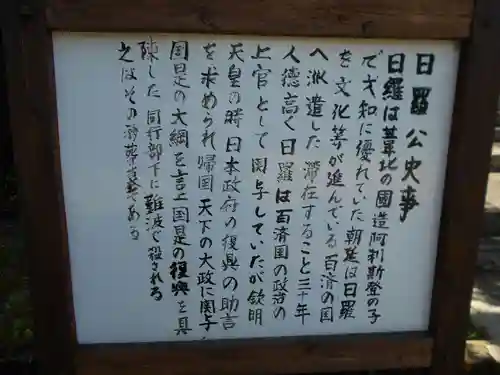 日羅公史事
日羅は葦北の國造阿利斯登の子
で才知に優れていた 朝廷は日羅
を文化等が進んでいる百済の国
へ派遣した 滞在すること三十年
人徳高く日羅は百済国の政治の
上官として関与していたが欽明
天皇の時日本政府の復興の助言
を求められ帰国 天下の大政に関与し
国是の大綱を言上国是の復興を具
陳した 同行部下に難波で殺される
之はその墳墓である